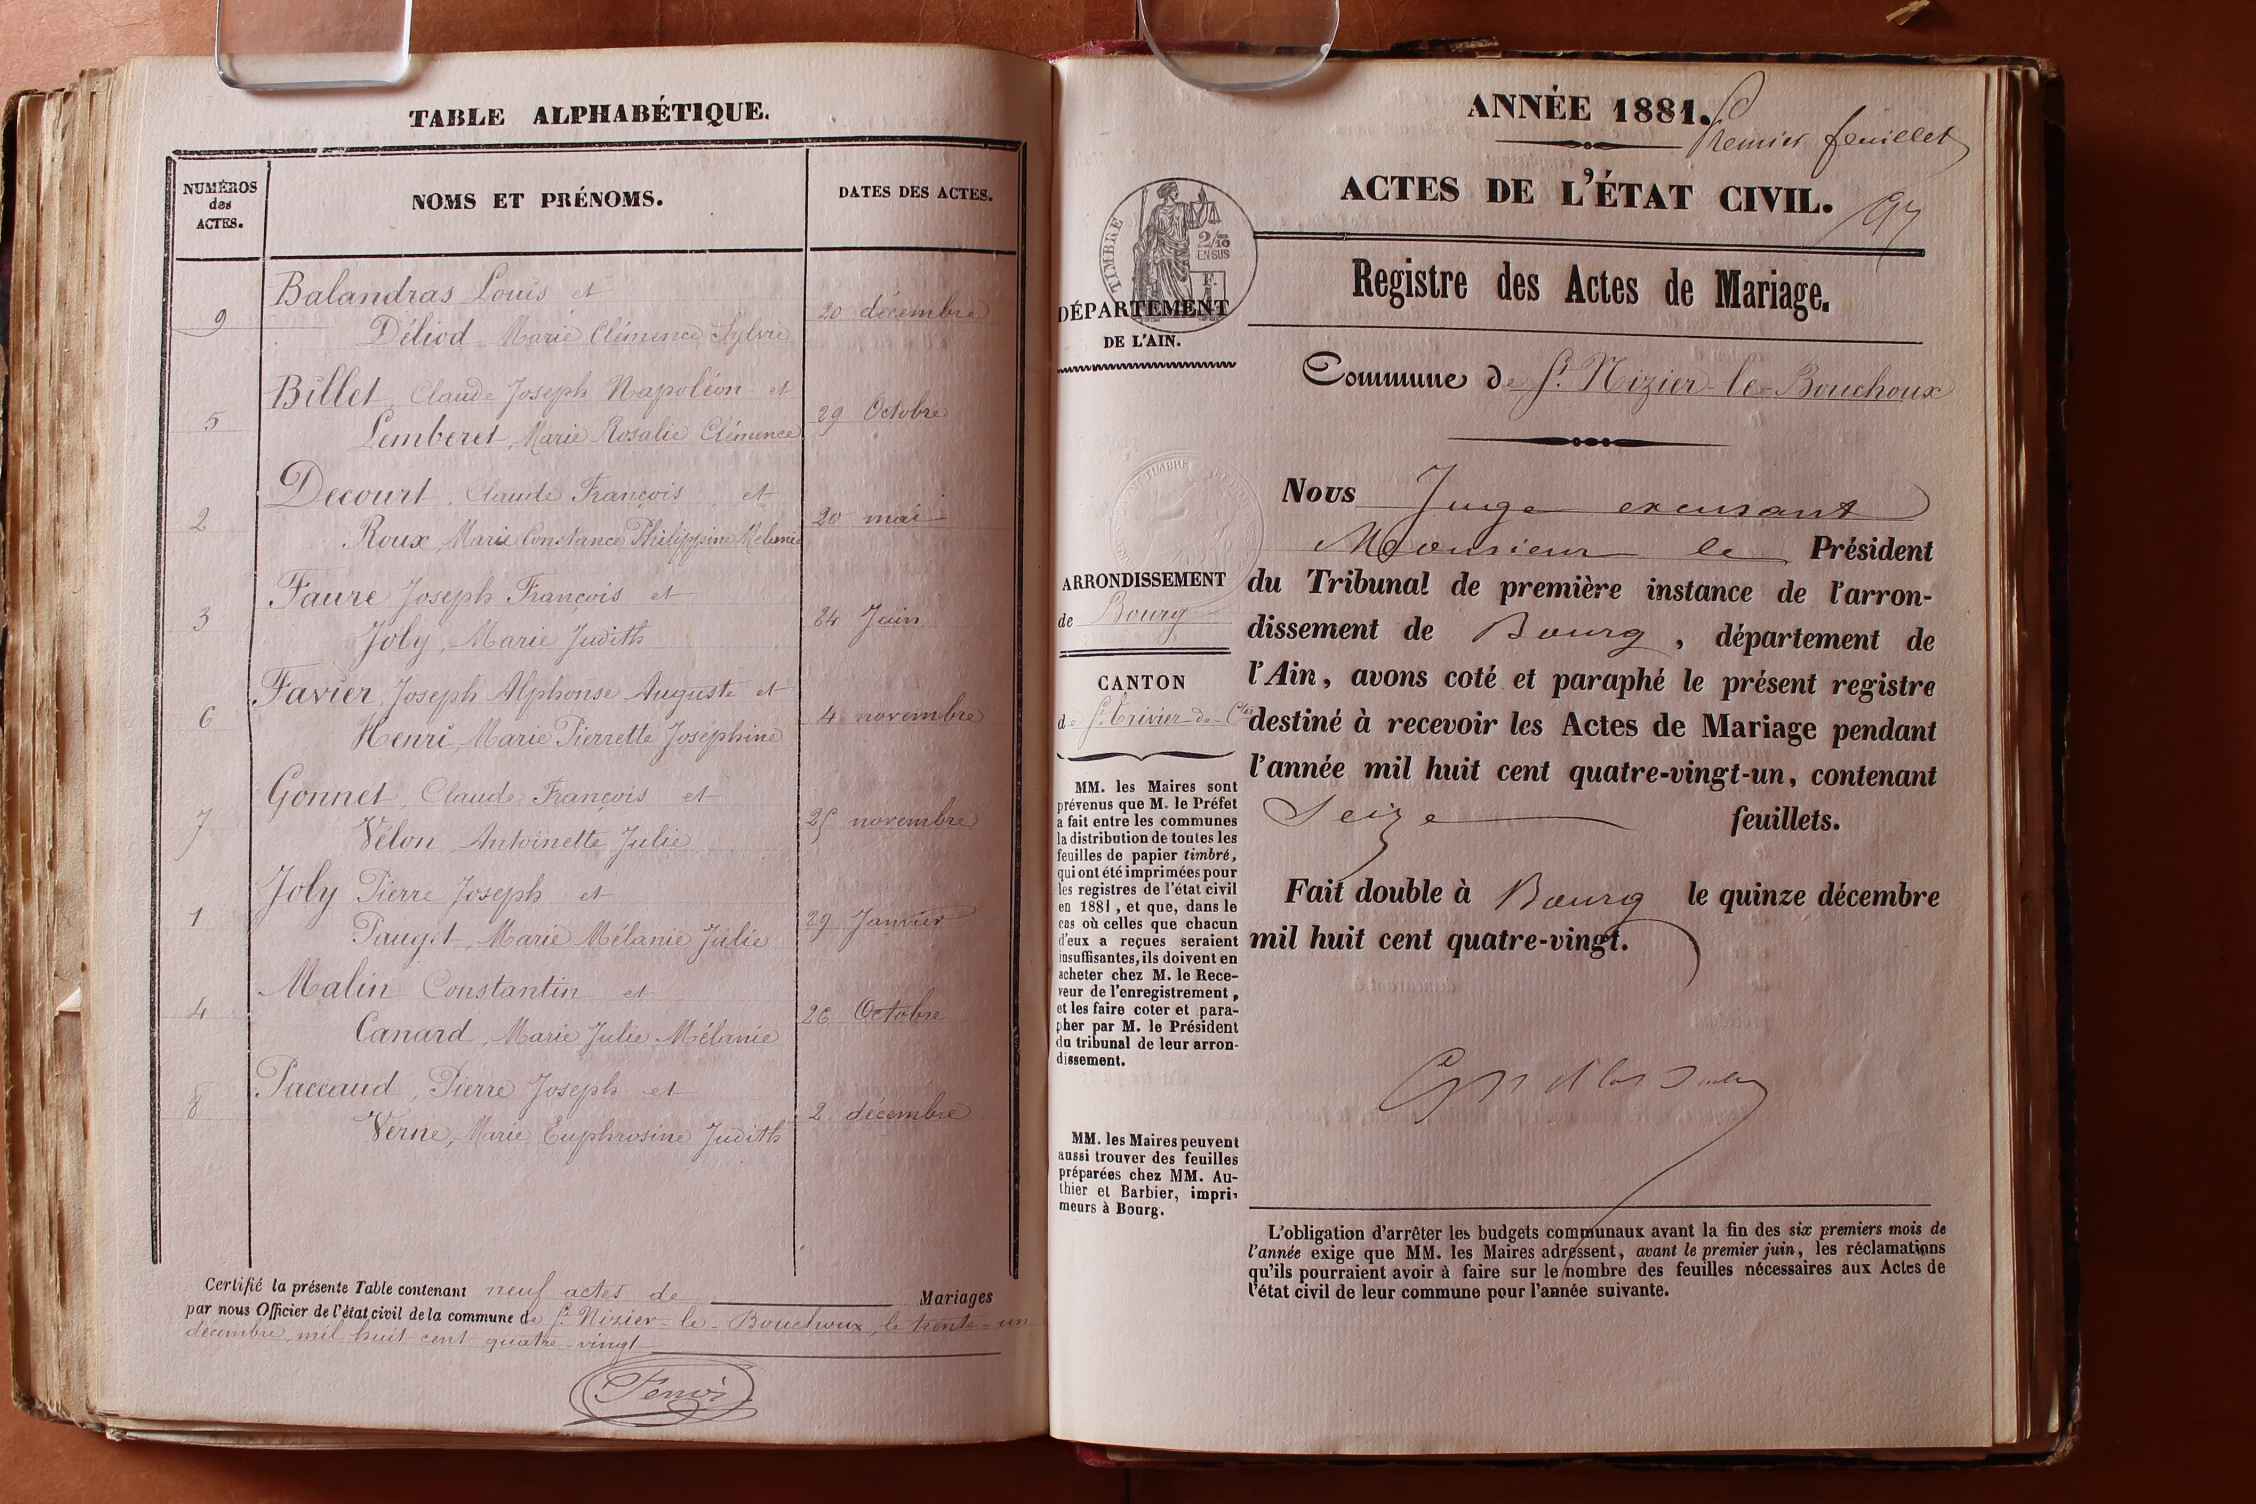 TABLE ALPHABÉTIQUE.
NUMÉROS
des
ACTES.
NOMS ET PRÉNOMS.
DATES DES ACTES.
Balandras Louis et
9
20 décembre
Déliod Marie Clémence Sylvie
Billet, Claude Joseph Napoléon et
5
29 Octobre
Lemberet, Marie Rosalie Clémence
Decourt, Claude François et
2
20 mai
Roux, Marie Constance Philippine Mélanie
Faure Joseph François et
3
24 Juin
Joly, Marie Judith
Favier, Joseph Alphonse Auguste et
6
4 novembre
Henri, Marie Pierrette Joséphine
Gonnet, Claude François et
7
25 novembre
Vélon Antoinette Julie
Joly Pierre Joseph et
1
29 Janvier
Pauget, Marie Mélanie Julie
Malin Constantin et
4
26 Octobre
Canard, Marie Julie Mélanie
Paccaud, Pierre Joseph et
8
2 décembre
Verne, Marie Euphrosine Judith
Certifié la présente Table contenant neuf actes de Mariages
par nous Officier de l'état civil de la commune de St Nizier-le-Bouchoux, le trente-un
décembre, mil huit cent quatre-vingt
ANNÉE 1881.
Premier feuillet
ACTES DE L'ÉTAT CIVIL.
TIMBRE
2/10
EN SUS
Registre des Actes de Mariage.
DÉPARTEMENT
DE L'AIN.
Commune de St Nizier-le-Bouchoux
Nous Juge excusant
Monsieur le Président
du Tribunal de première instance de l'arron-
dissement de Bourg, département de
l'Ain, avons coté et paraphé le présent registre
destiné à recevoir les Actes de Mariage pendant
l'année mil huit cent quatre-vingt-un, contenant
Seize feuillets.
Fait double à Bourg le quinze décembre
mil huit cent quatre-vingt.
ARRONDISSEMENT
de Bourg
CANTON
de St Trivier-de-Ctes
MM. les Maires sont
prévenus que M. le Préfet
a fait entre les communes
la distribution de toutes les
feuilles de papier timbré,
qui ont été imprimées pour
les registres de l'état civil
en 1881, et que, dans le
cas où celles que chacun
d'eux a reçues seraient
insuffisantes, ils doivent en
acheter chez M. le Rece-
veur de l'enregistrement,
et les faire coter et para-
pher par M. le Président
du tribunal de leur arron-
dissement.
MM. les Maires peuvent
aussi trouver des feuilles
préparées chez MM. Au-
thier et Barbier, impri-
meurs à Bourg.
L'obligation d'arrêter les budgets communaux avant la fin des six premiers mois de
l'année exige que MM. les Maires adressent, avant le premier juin, les réclamations
qu'ils pourraient avoir à faire sur le nombre des feuilles nécessaires aux Actes de
l'état civil de leur commune pour l'année suivante.